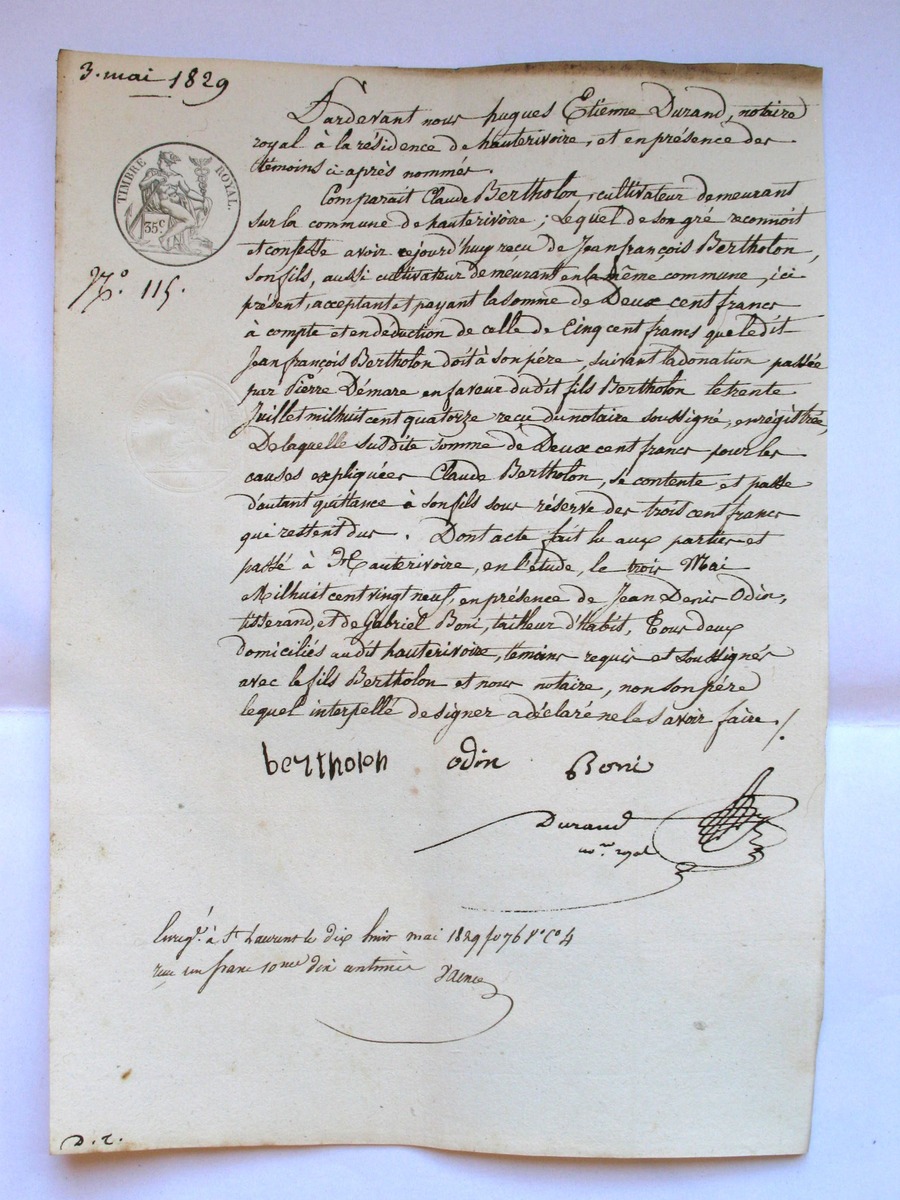 3. mai 1829
Pardevant nous hugues Etienne Durand, notaire
royal à la résidence de hauterivoire, et en présence des
témoins ci après nommés.
Comparait Claude Bertholon, cultivateur demeurant
sur la commune de hauterivoire ; Lequel de son gré reconnoit
et confesse avoir cejourd'huy reçu de Jean françois Bertholon,
son fils, aussi cultivateur demeurant en la même commune, ici
présent, acceptant et payant la somme de Deux cent francs
à compte et en déduction de celle de Cinq cent francs que ledit
Jean françois Bertholon doit à son pére, suivant la donation passée
par Pierre Démare en faveur dudit fils Bertholon le trente
Juillet mil huit cent quatorze reçu du notaire soussigné, enrégistrée,
De laquelle susdite somme de Deux cent francs pour les
causes expliquées Claude Bertholon, se contente et passe
d'autant quittance à son fils sous réserve des trois cent francs
qui restent dus. Dont acte fait lu aux parties et
passé à Hauterivoire, en l'étude, le trois Mai
Mil huit cent vingt neuf, en présence de Jean Denis Odin,
tisserand, et de Gabriel Boni, tailleur d'habit, Tous deux
domiciliés audit hauterivoire, temoins requis et soussignés
avec le fils Bertholon et nous notaire, non son pére
lequel interpellé de signer a déclaré ne le savoir faire ./
TIMBRE ROYAL.
35c
No. 115.
bertholon odin Boni
Durand
no.re royal
Enregé. à St Laurent le dix huit mai 1829 fo 76 Vo Co 4
reçu un franc 10me dix centimes
D. r.